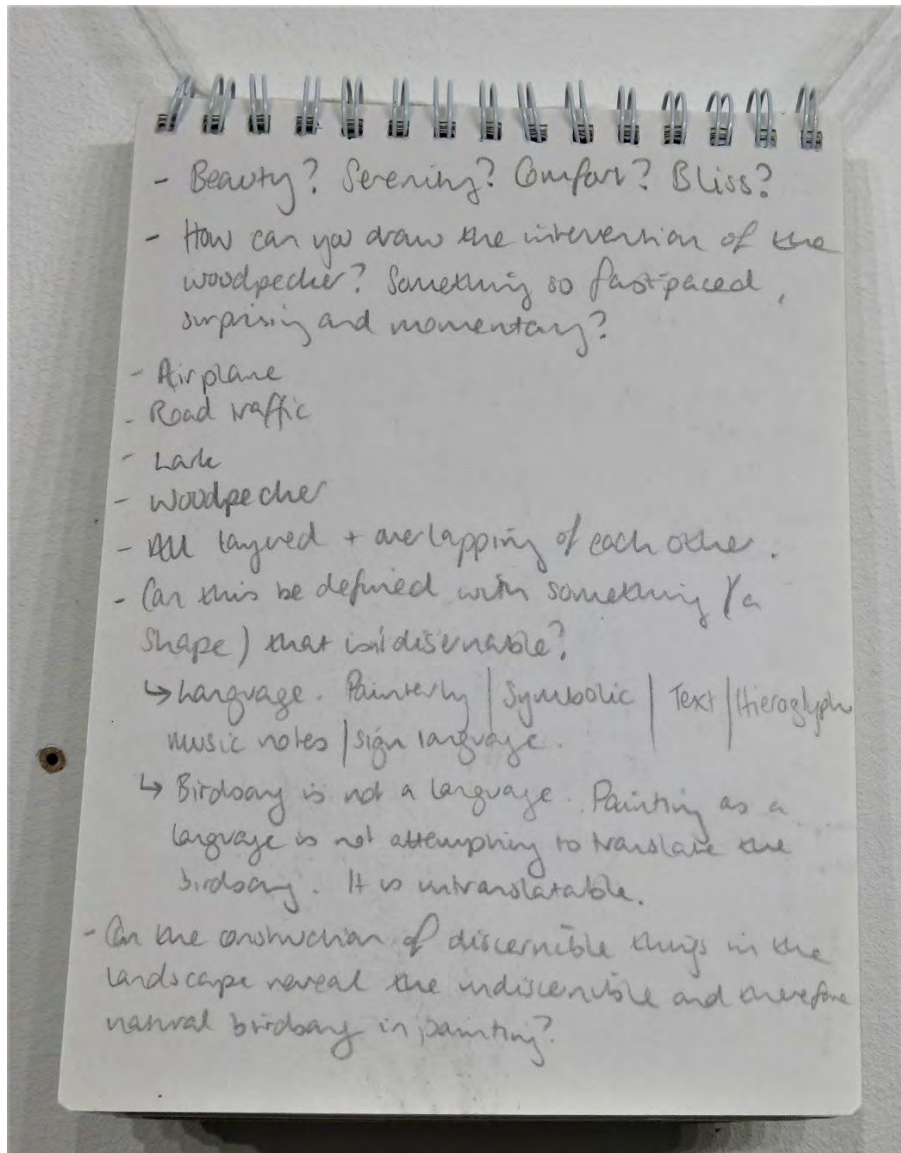 - Beauty? Serenity? Comfort? Bliss?
- How can you draw the intervention of the
woodpecker? Something so fastpaced,
surprising and momentary?
- Airplane
- Road traffic
- Lark
- Woodpecker
- All layered + overlapping of each other.
- Can this be defined with something (a
shape) that isn't disernable?
↳ Language. Painterly | Symbolic | Text | Hieroglyph
music notes | sign language.
↳ Birdsong is not a language. Painting as a
language is not attempting to translate the
birdsong. It is untranslatable.
- Can the construction of discernible things in the
landscape reveal the indiscernible and therefore
natural birdsong in painting?